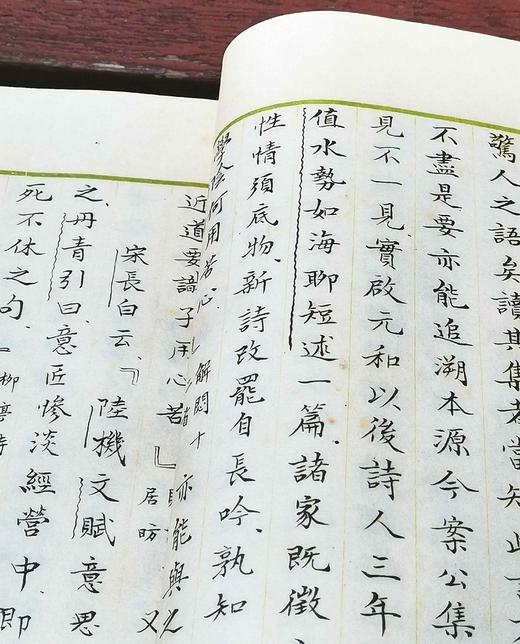 驚人之語矣讀其集者當知此
不盡是要亦能追溯本源今案公集
見不一見實啟元和以後詩人三年
值水勢如海聊短述一篇諸家既徵
性情須底物新詩改罷自長吟孰知
學陰何用苦心解悶十
近道要諳
居昉
亦能與
又
宋長白云陸機文賦意思
之丹青引曰意匠慘淡經營中即
死不休之句柳亭詩